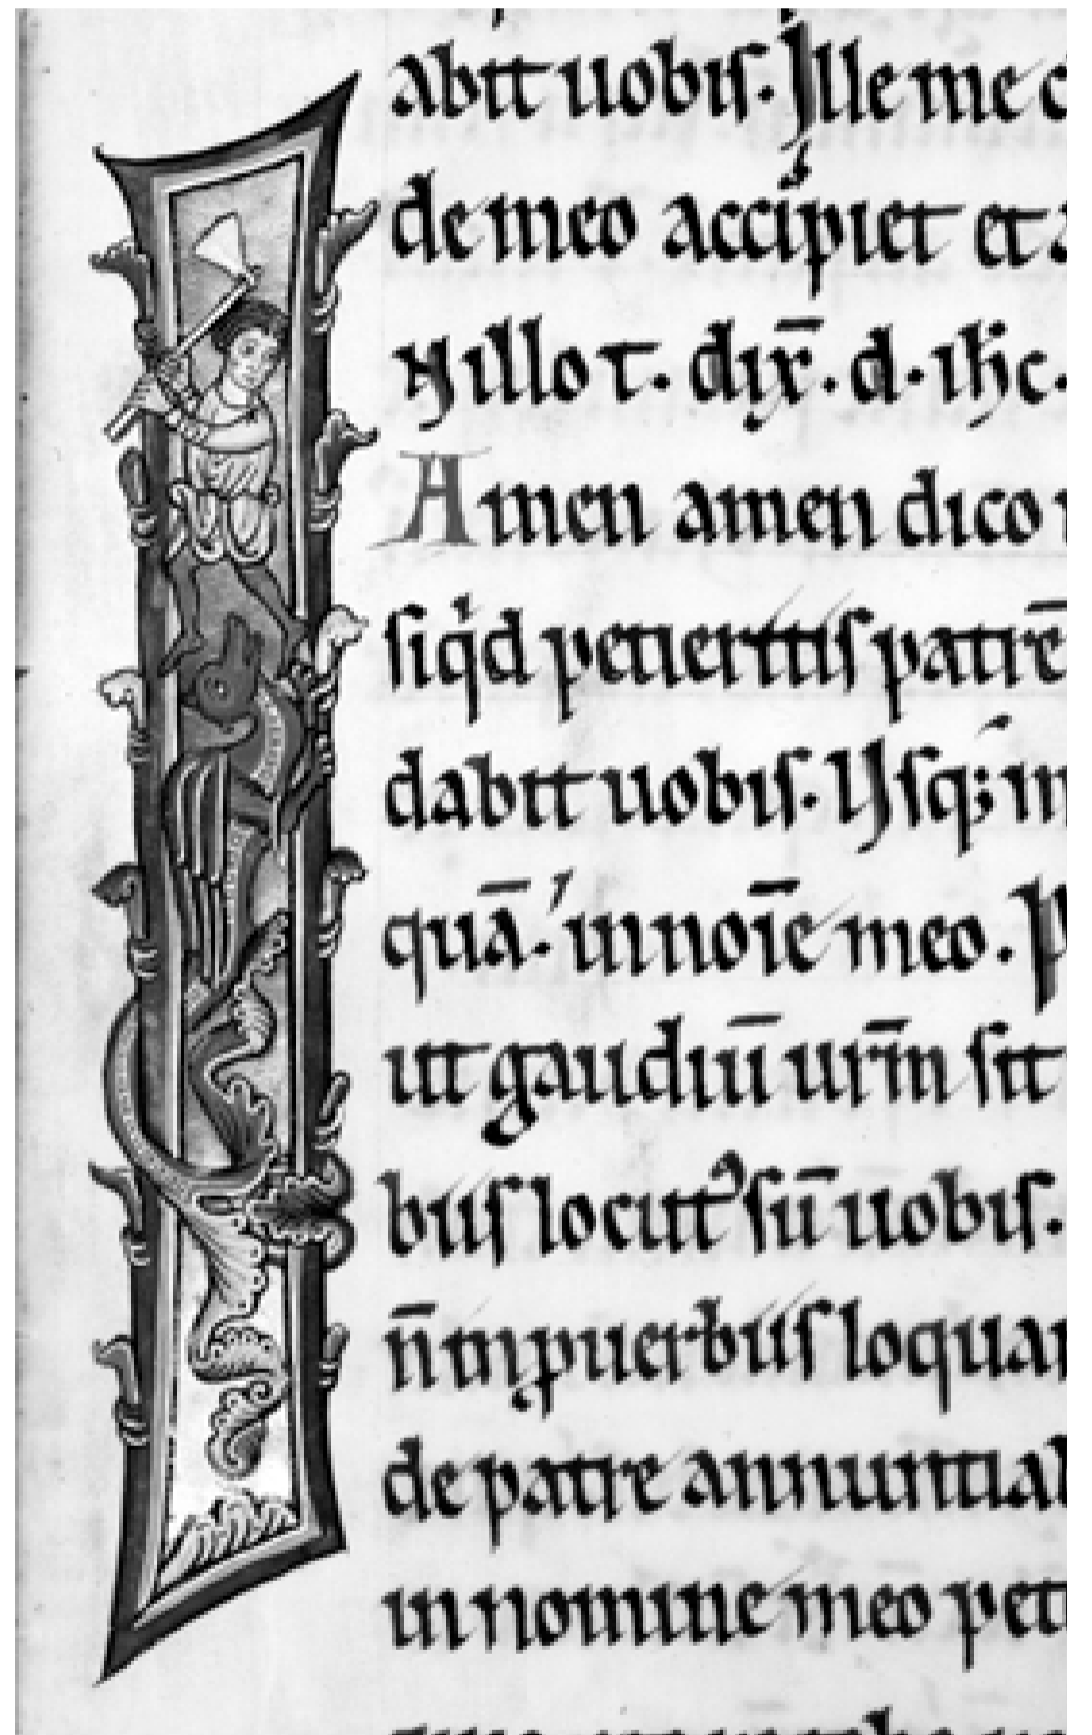 abit uobis. Ille me c
de meo accipiet et a
N illo t. dix̄. d. ih̄c.
Amen amen dico
siqͥd petieritis patrē
dabit uobis. Vsq; in
quā. in noīe meo. P
ut gaudiū ur̄m sit
biis locutꝰ sū uobis.
n̄ in ꝓuerbiis loquar
de patre annuntiab
in nomine meo peti